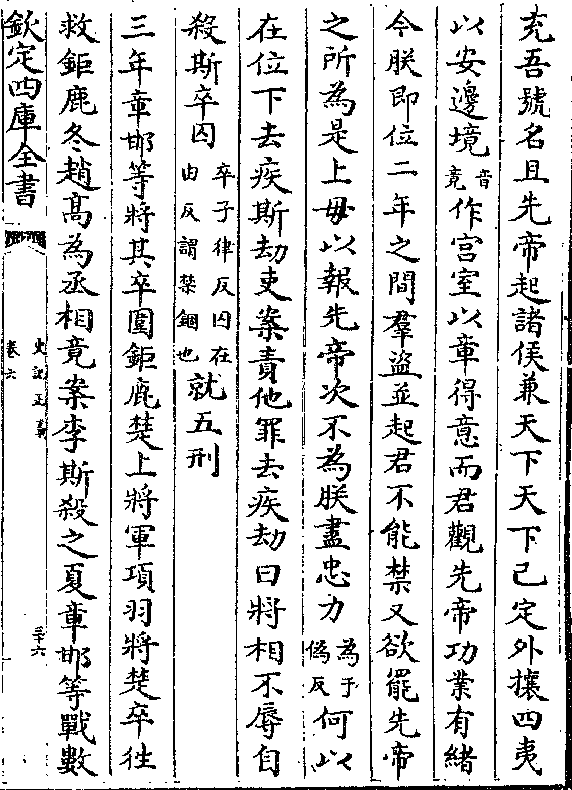 充吾號名且先帝起諸侯兼天下天下已定外攘四夷
以安邊境音竟作宫室以章得意而君觀先帝功業有緒
今朕即位二年之間羣盗並起君不能禁又欲罷先帝
之所為是上毋以報先帝次不為朕盡忠力為于偽反何以
在位下去疾斯劫吏案責他罪去疾劫曰將相不辱自
殺斯卒囚卒子律反囚在由反謂禁錮也就五刑
三年章邯等將其卒圍鉅鹿楚上將軍項羽將楚卒往
救鉅鹿冬趙髙為丞相竟案李斯殺之夏章邯等戰數
欽定四庫全書
史記正義
卷六
三十六